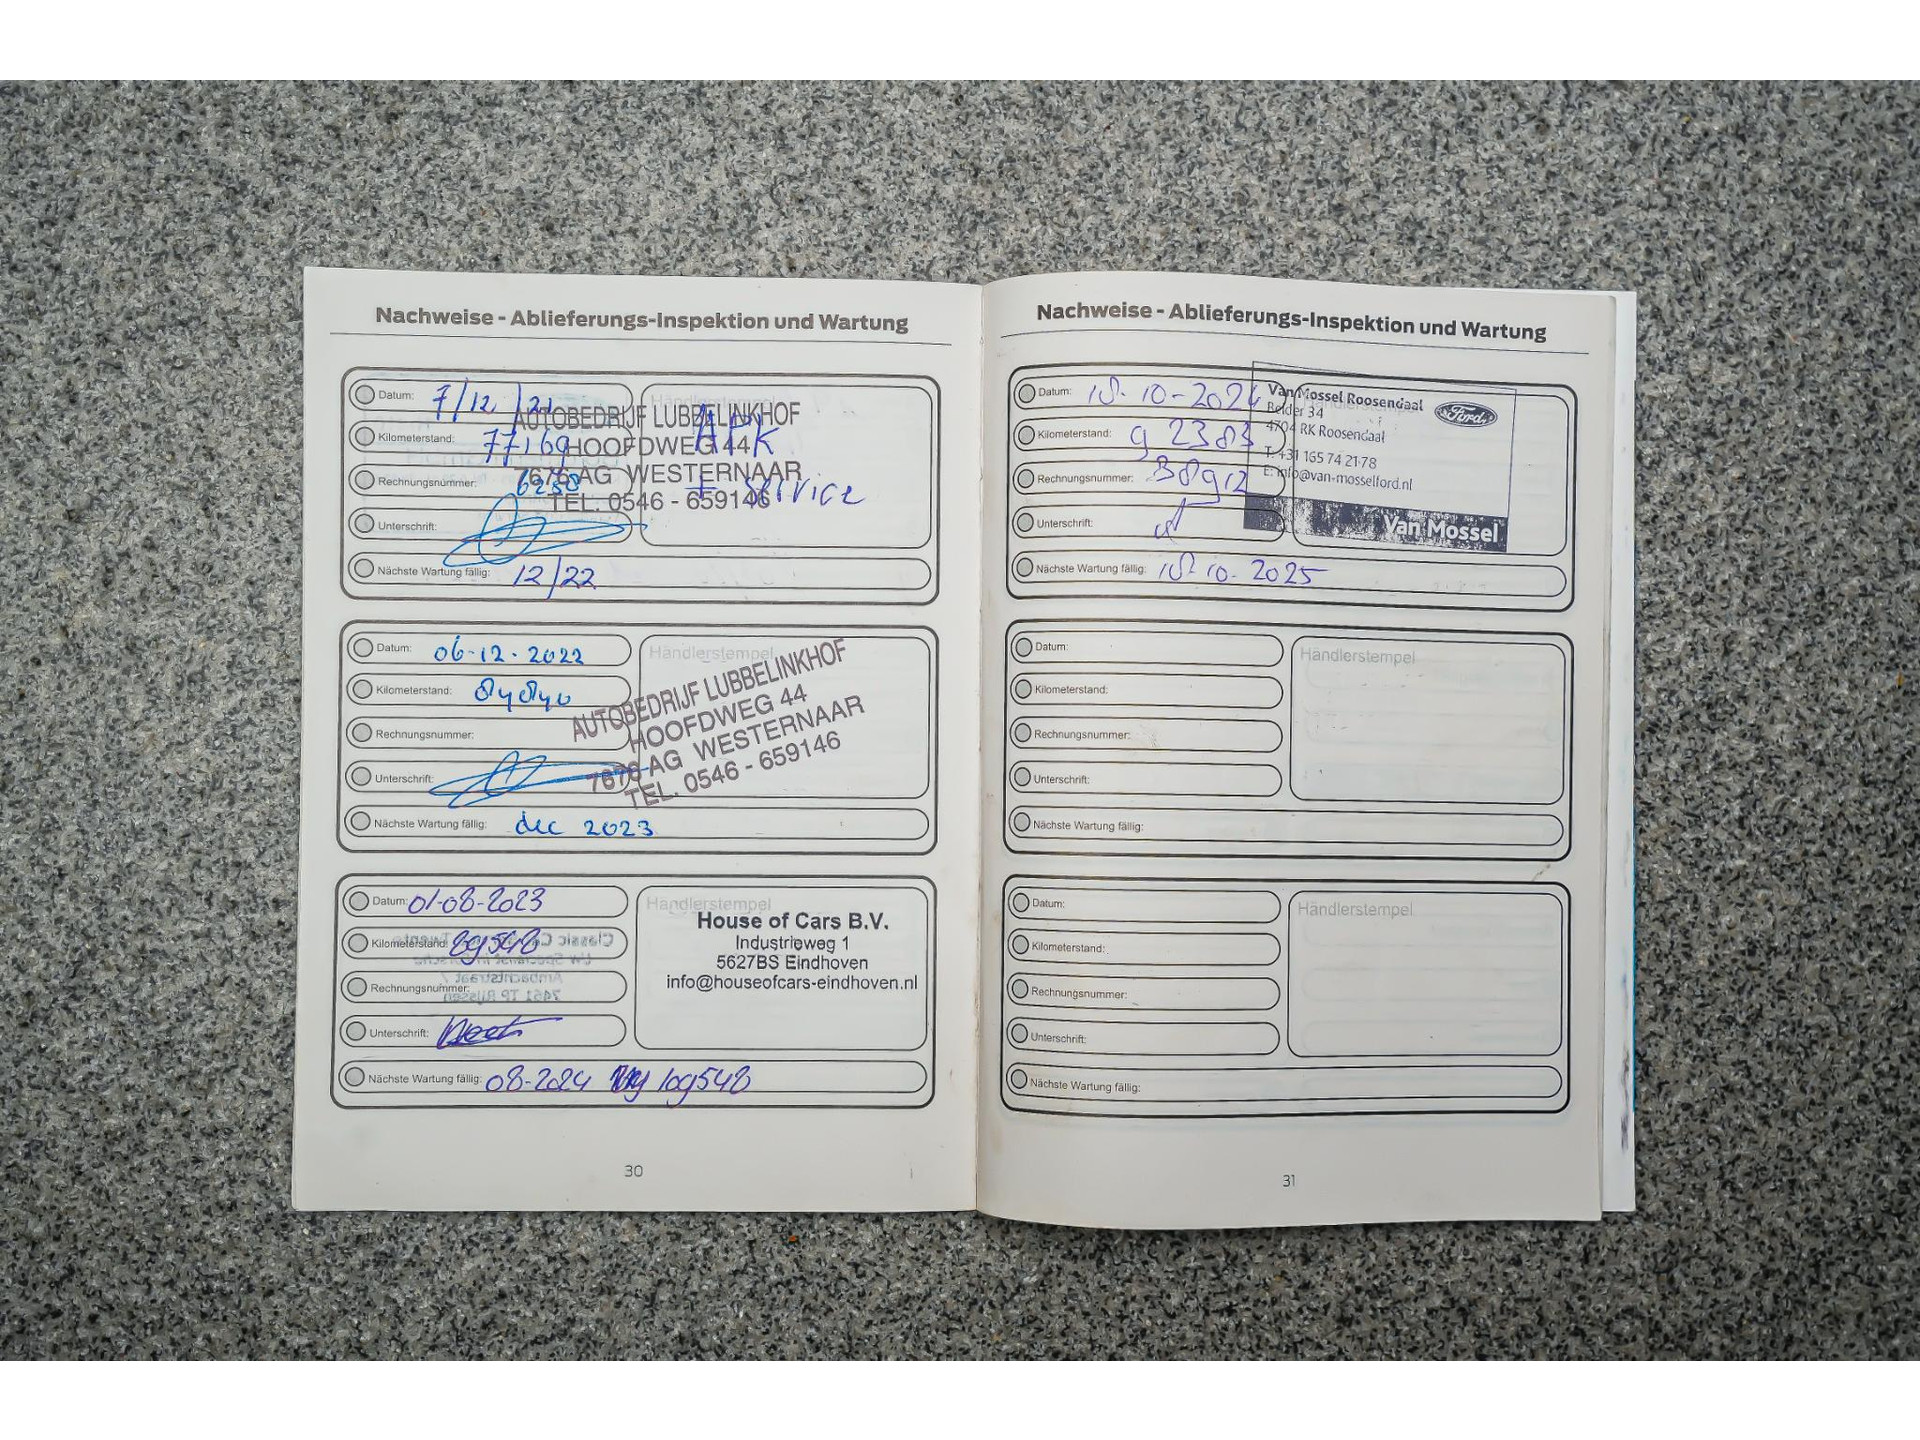 Nachweise - Ablieferungs-Inspektion und Wartung
Datum: 7/12/21
Händlerstempel
AUTOBEDRIJF LUBBELINKHOF
Kilometerstand: 77169
HOOFDWEG 44
APK
Rechnungsnummer:
7676 AG WESTERNAAR
+ Service
TEL. 0546 - 659146
Unterschrift:
Nächste Wartung fällig: 12/22
Datum: 06-12-2022
Händlerstempel
Kilometerstand:
AUTOBEDRIJF LUBBELINKHOF
HOOFDWEG 44
7676 AG WESTERNAAR
TEL. 0546 - 659146
Rechnungsnummer:
Unterschrift:
Nächste Wartung fällig: dec 2023
Datum: 01-08-2023
Händlerstempel
House of Cars B.V.
Industrieweg 1
5627BS Eindhoven
info@houseofcars-eindhoven.nl
Kilometerstand: 89548
Rechnungsnummer:
Unterschrift:
Nächste Wartung fällig: 08-2024 109548
30
Nachweise - Ablieferungs-Inspektion und Wartung
Datum: 18-10-2024
Händlerstempel
Van Mossel Roosendaal
Ford
Belder 34
4704 RK Roosendaal
T: +31 165 74 21 78
E: info@van-mosselford.nl
Van Mossel
Kilometerstand: 92383
Rechnungsnummer: 38912
Unterschrift:
Nächste Wartung fällig: 18-10-2025
Datum:
Händlerstempel
Kilometerstand:
Rechnungsnummer:
Unterschrift:
Nächste Wartung fällig:
Datum:
Händlerstempel
Kilometerstand:
Rechnungsnummer:
Unterschrift:
Nächste Wartung fällig:
31